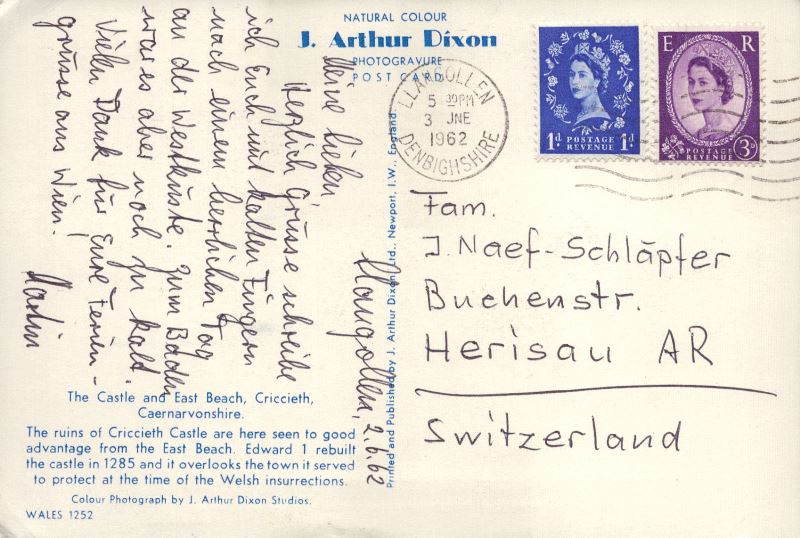 NATURAL COLOUR
J. Arthur Dixon
PHOTOGRAVURE
POST CARD
LLANGOLLEN
5 30PM
3 JNE
1962
DENBIGHSHIRE
1d POSTAGE 1d
REVENUE
E R
POSTAGE
REVENUE 3d
Llangollen, 2.6.62
Meine Lieben
Herzlich Grüsse schreibe
ich Euch mit kalten Fingern
nach einem herrlichen Tag
an der Westküste. Zum Baden
war es aber noch zu kalt.
Vielen Dank für Eure Ferien-
grüsse aus Wien!
Martin
Printed and Published by J. Arthur Dixon Ltd., Newport, I.W., England.
Fam.
J. Naef-Schläpfer
Buchenstr.
Herisau AR
Switzerland
The Castle and East Beach, Criccieth,
Caernarvonshire.
The ruins of Criccieth Castle are here seen to good
advantage from the East Beach. Edward 1 rebuilt
the castle in 1285 and it overlooks the town it served
to protect at the time of the Welsh insurrections.
Colour Photograph by J. Arthur Dixon Studios.
WALES 1252